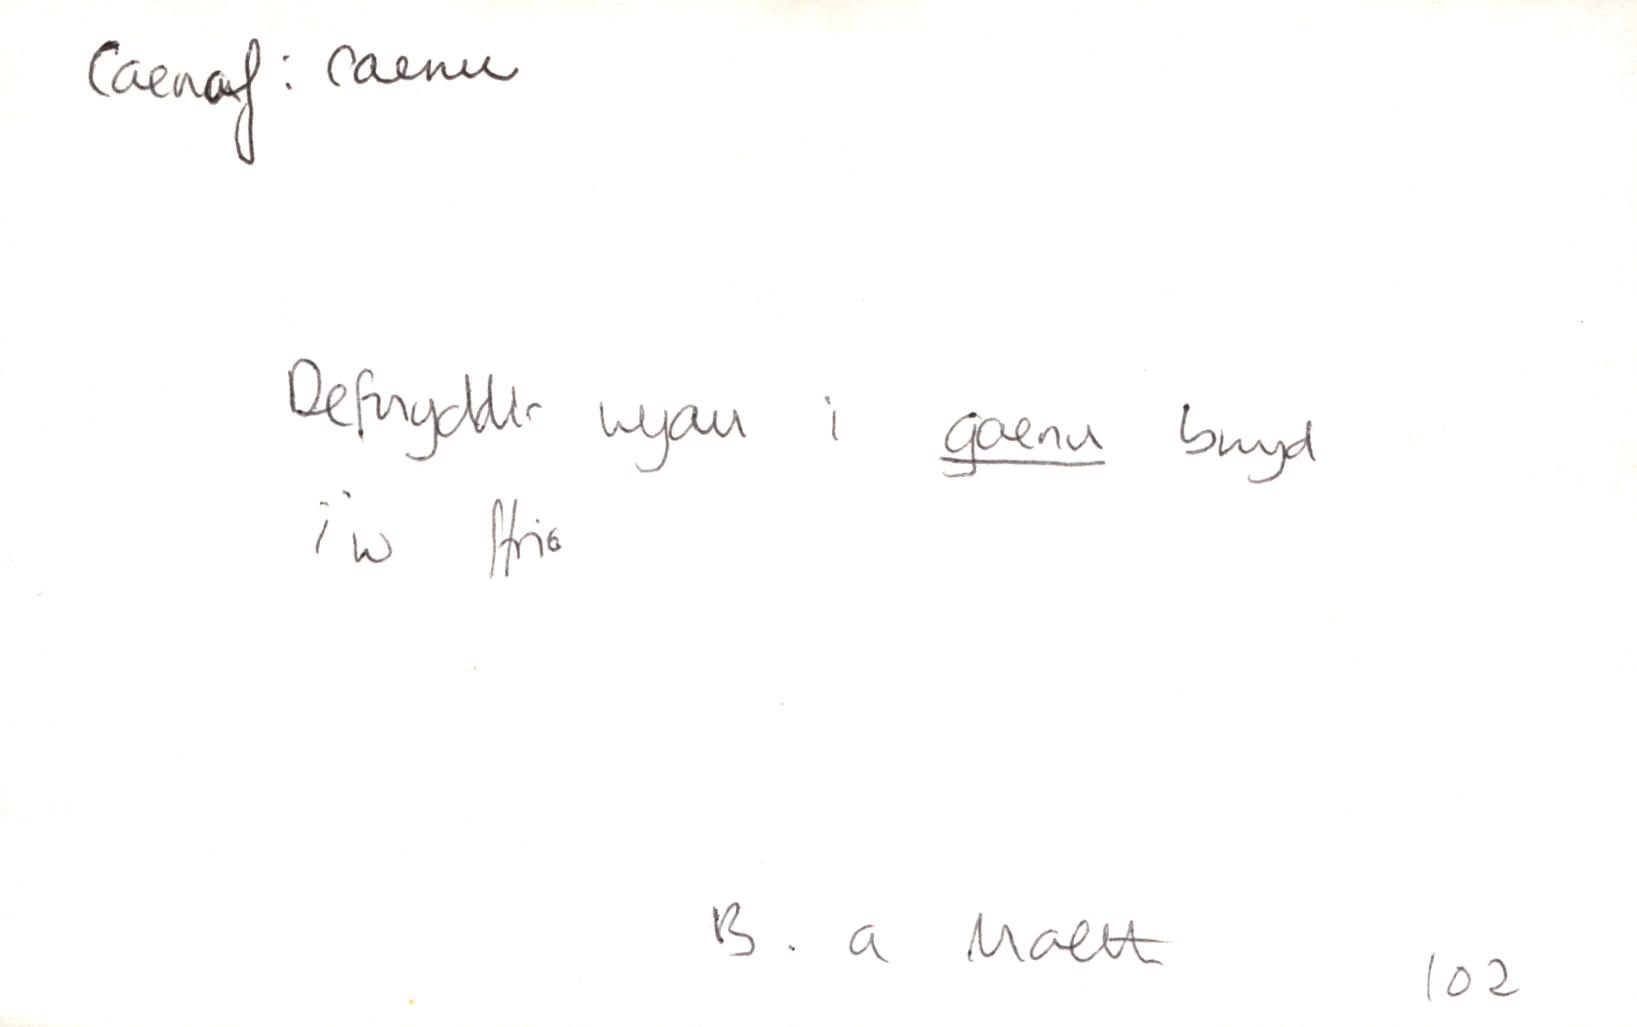 Caenaf: caenu
Defnyddir wyau i gaenu bwyd
i'w ffrio
B. a Maeth
102